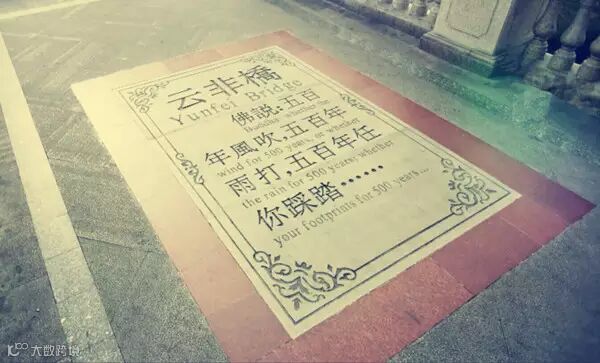 云非橋
Yunfei Bridge
佛説:五百
Buddha, whether the
年風吹,五百年
wind for 500 years, or whether
雨打,五百年任
the rain for 500 years; whether
你踩踏……
your footprints for 500 years...
大数跨境